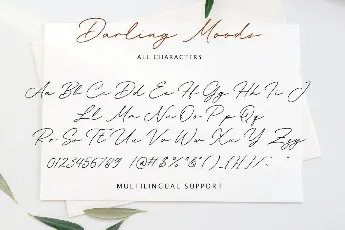 Darling Moods
ALL CHARACTERS
Aa Bb Cc Dd Ee Ff Gg Hh Ii Jj
Ll Mm Nn Oo Pp Qq
Rr Ss Tt Uu Vv Ww Xx Yy Zz
0123456789 !@#$%^&*()_{}[]/:
MULTILINGUAL SUPPORT